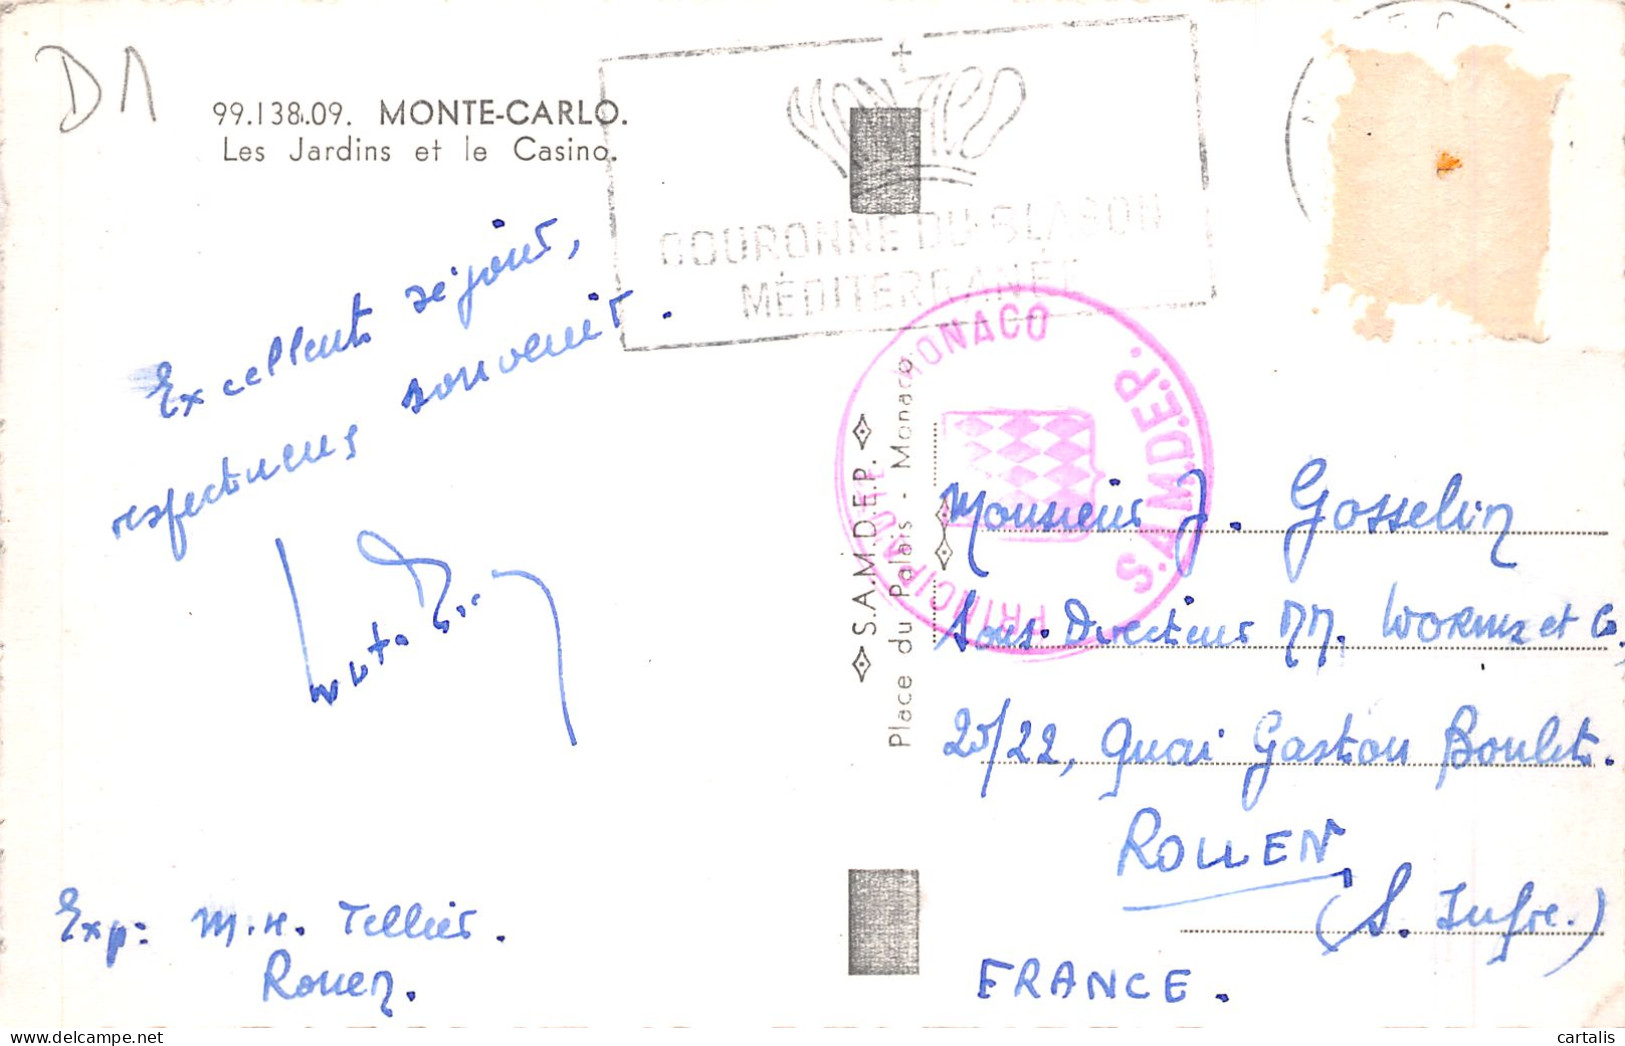 D1
99.138.09. MONTE-CARLO.
Les Jardins et le Casino.
COURONNE DU BLASON
MÉDITERRANÉE
Excellent séjour,
respectueux souvenir.
PRINCIPAUTÉ MONACO
S.A.M.D.E.P.
S.A.M.D.E.P.
Place du Palais - Monaco
Monsieur J. Gosselin
Sous-Directeur MM. Worms et Co,
20/22, Quai Gaston Boulet.
ROUEN
(S. Infre.)
FRANCE.
Exp: M.H. Tellier.
Rouen.
cartalis